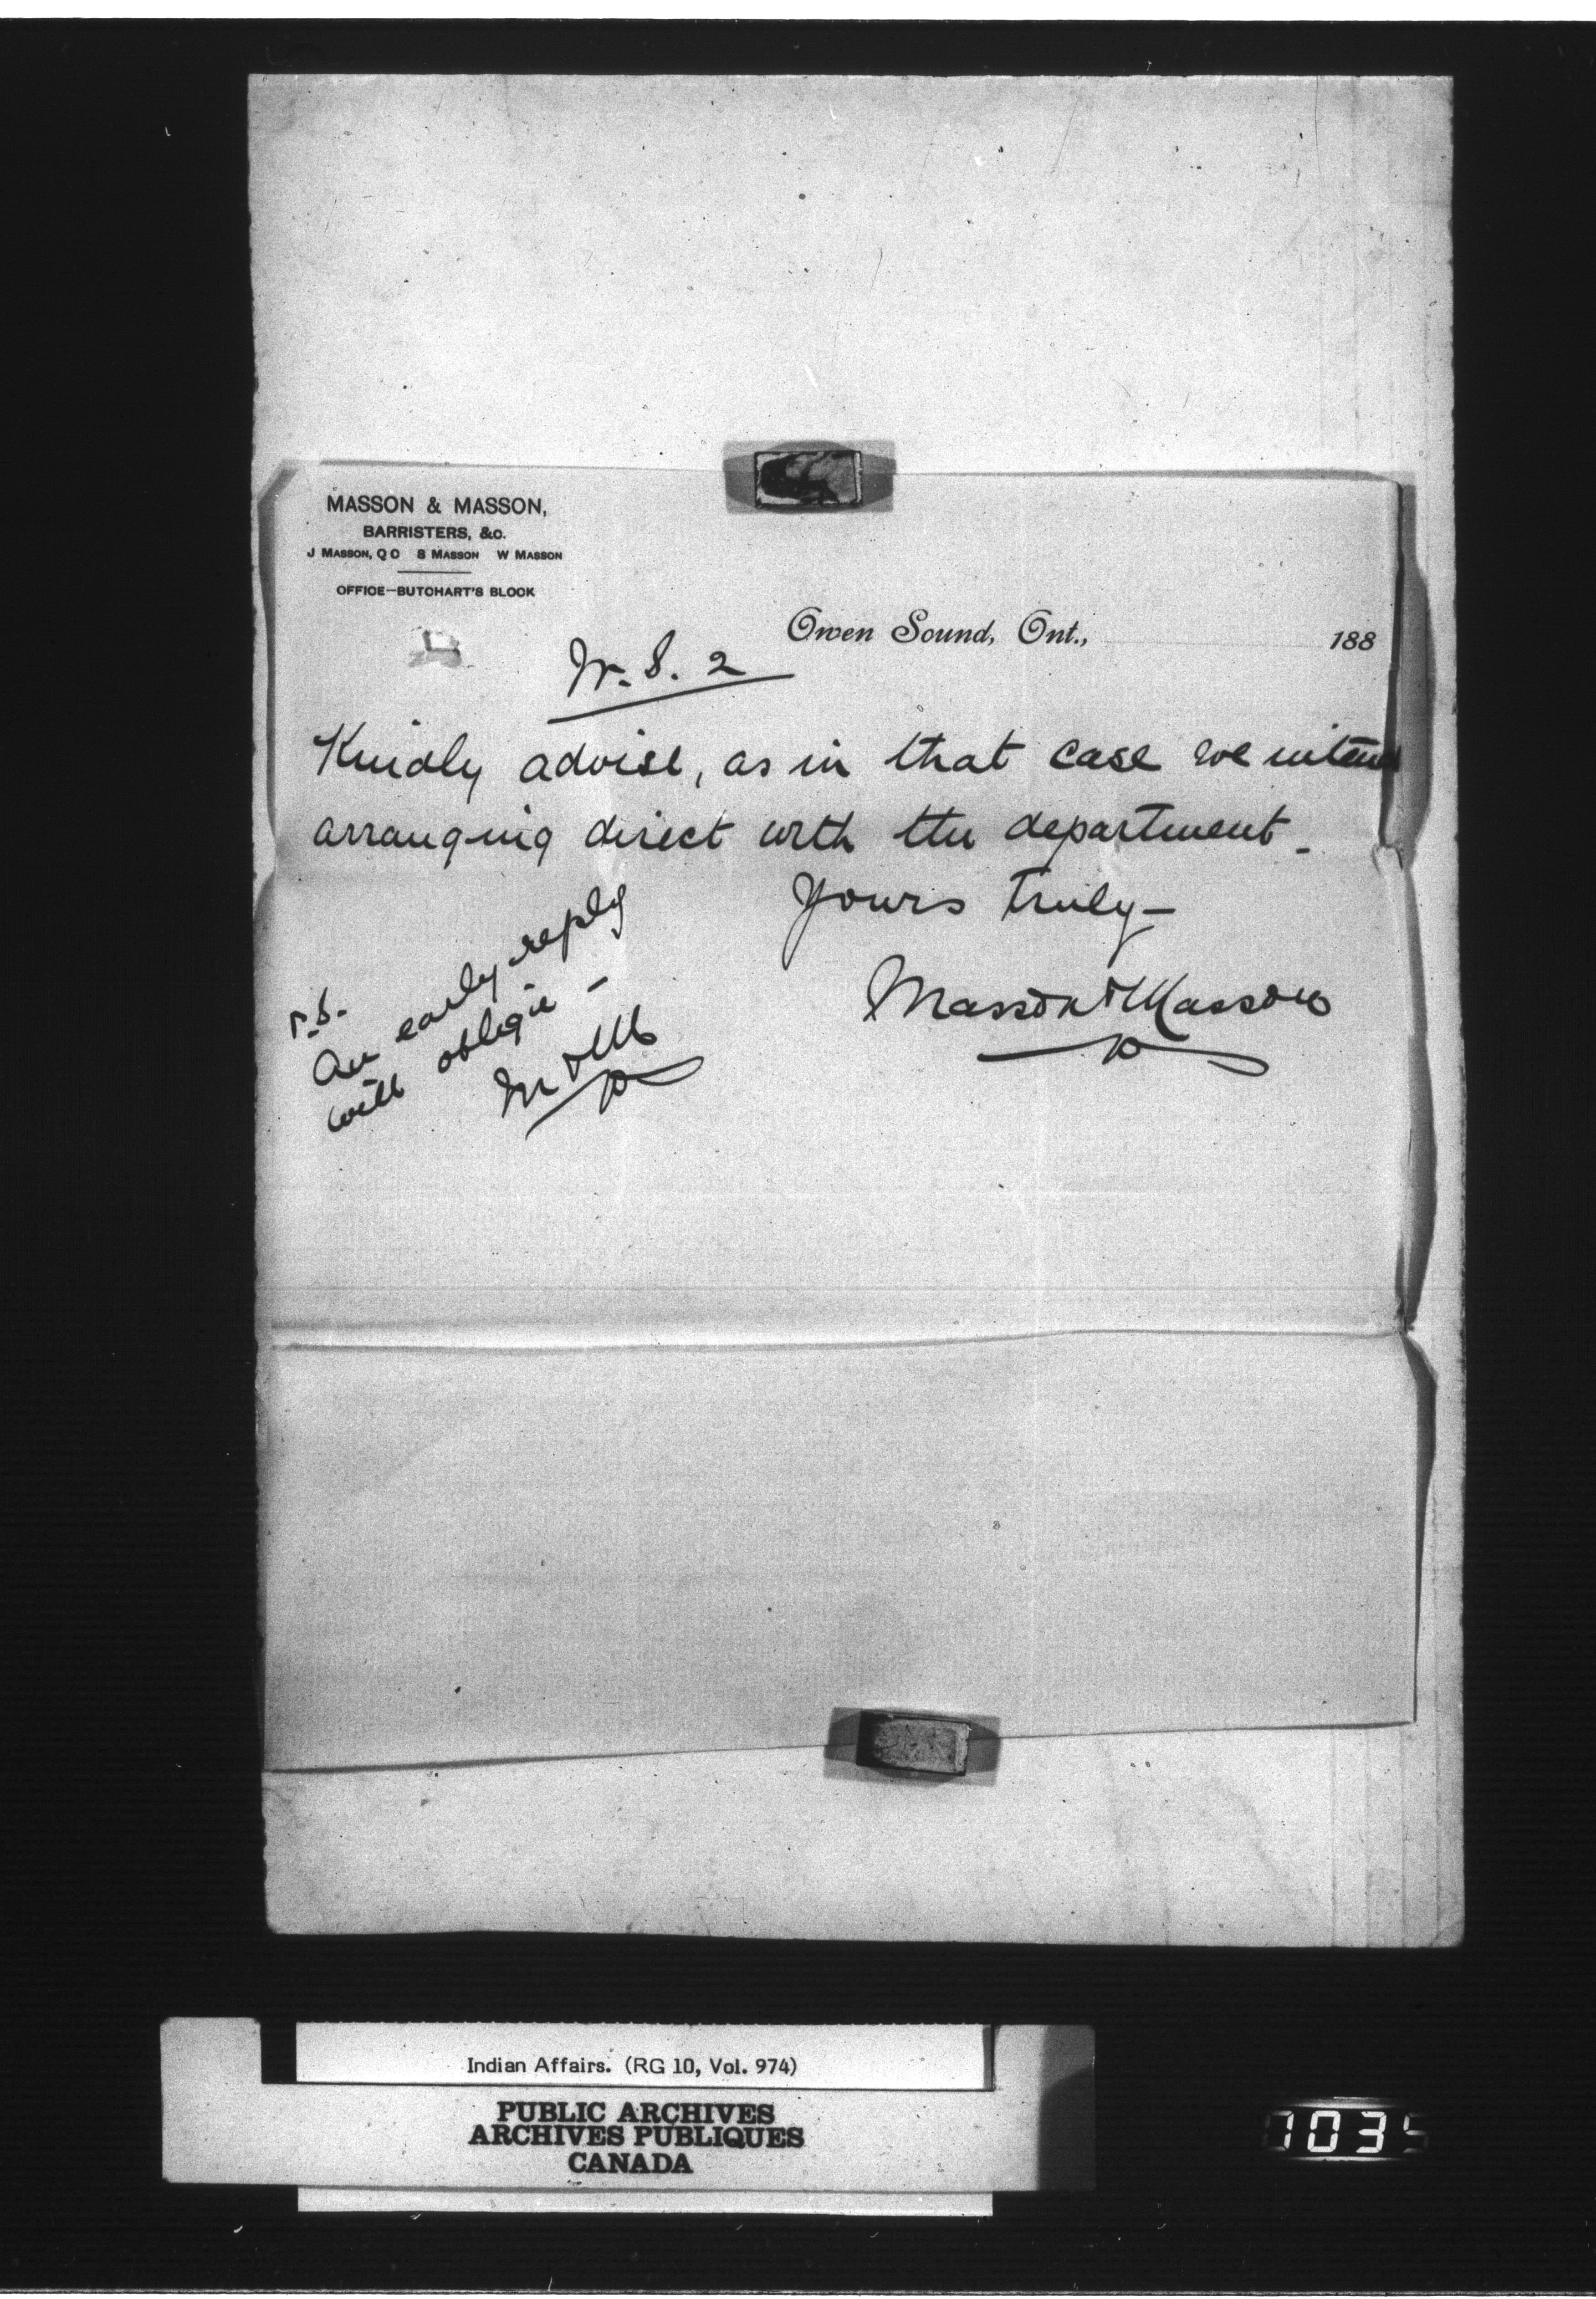 MASSON & MASSON,
BARRISTERS, &c.
J MASSON, Q C S MASSON W MASSON
OFFICE—BUTCHART'S BLOCK
Owen Sound, Ont., 188
W. S. 2
Kindly advise, as in that case we intend
arranging direct with the department.
Yours truly—
Masson & Masson
P.S.
An early reply
will oblige —
M & M
Indian Affairs. (RG 10, Vol. 974)
PUBLIC ARCHIVES
ARCHIVES PUBLIQUES
CANADA
1035